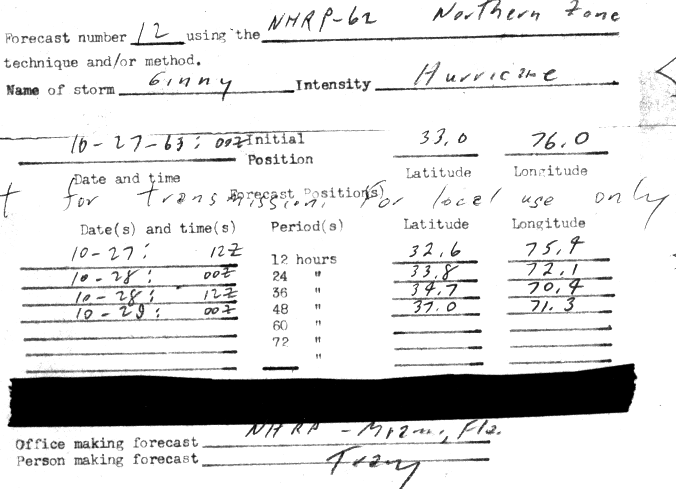 Forecast number 12 using the NHRP-62 Northern Zone
technique and/or method.
Name of storm Ginny Intensity Hurricane
10-27-63: 00Z Initial Position 33.0 76.0
Date and time Latitude Longitude
Forecast Position(s)
t for transmission. For local use only
Date(s) and time(s) Period(s) Latitude Longitude
10-27: 12Z 12 hours 32.6 75.4
10-28: 00Z 24 " 33.8 72.1
10-28: 12Z 36 " 34.7 70.4
10-29: 00Z 48 " 37.0 71.3
60 "
72 "
"
Office making forecast NHRP - Miami, Fla.
Person making forecast